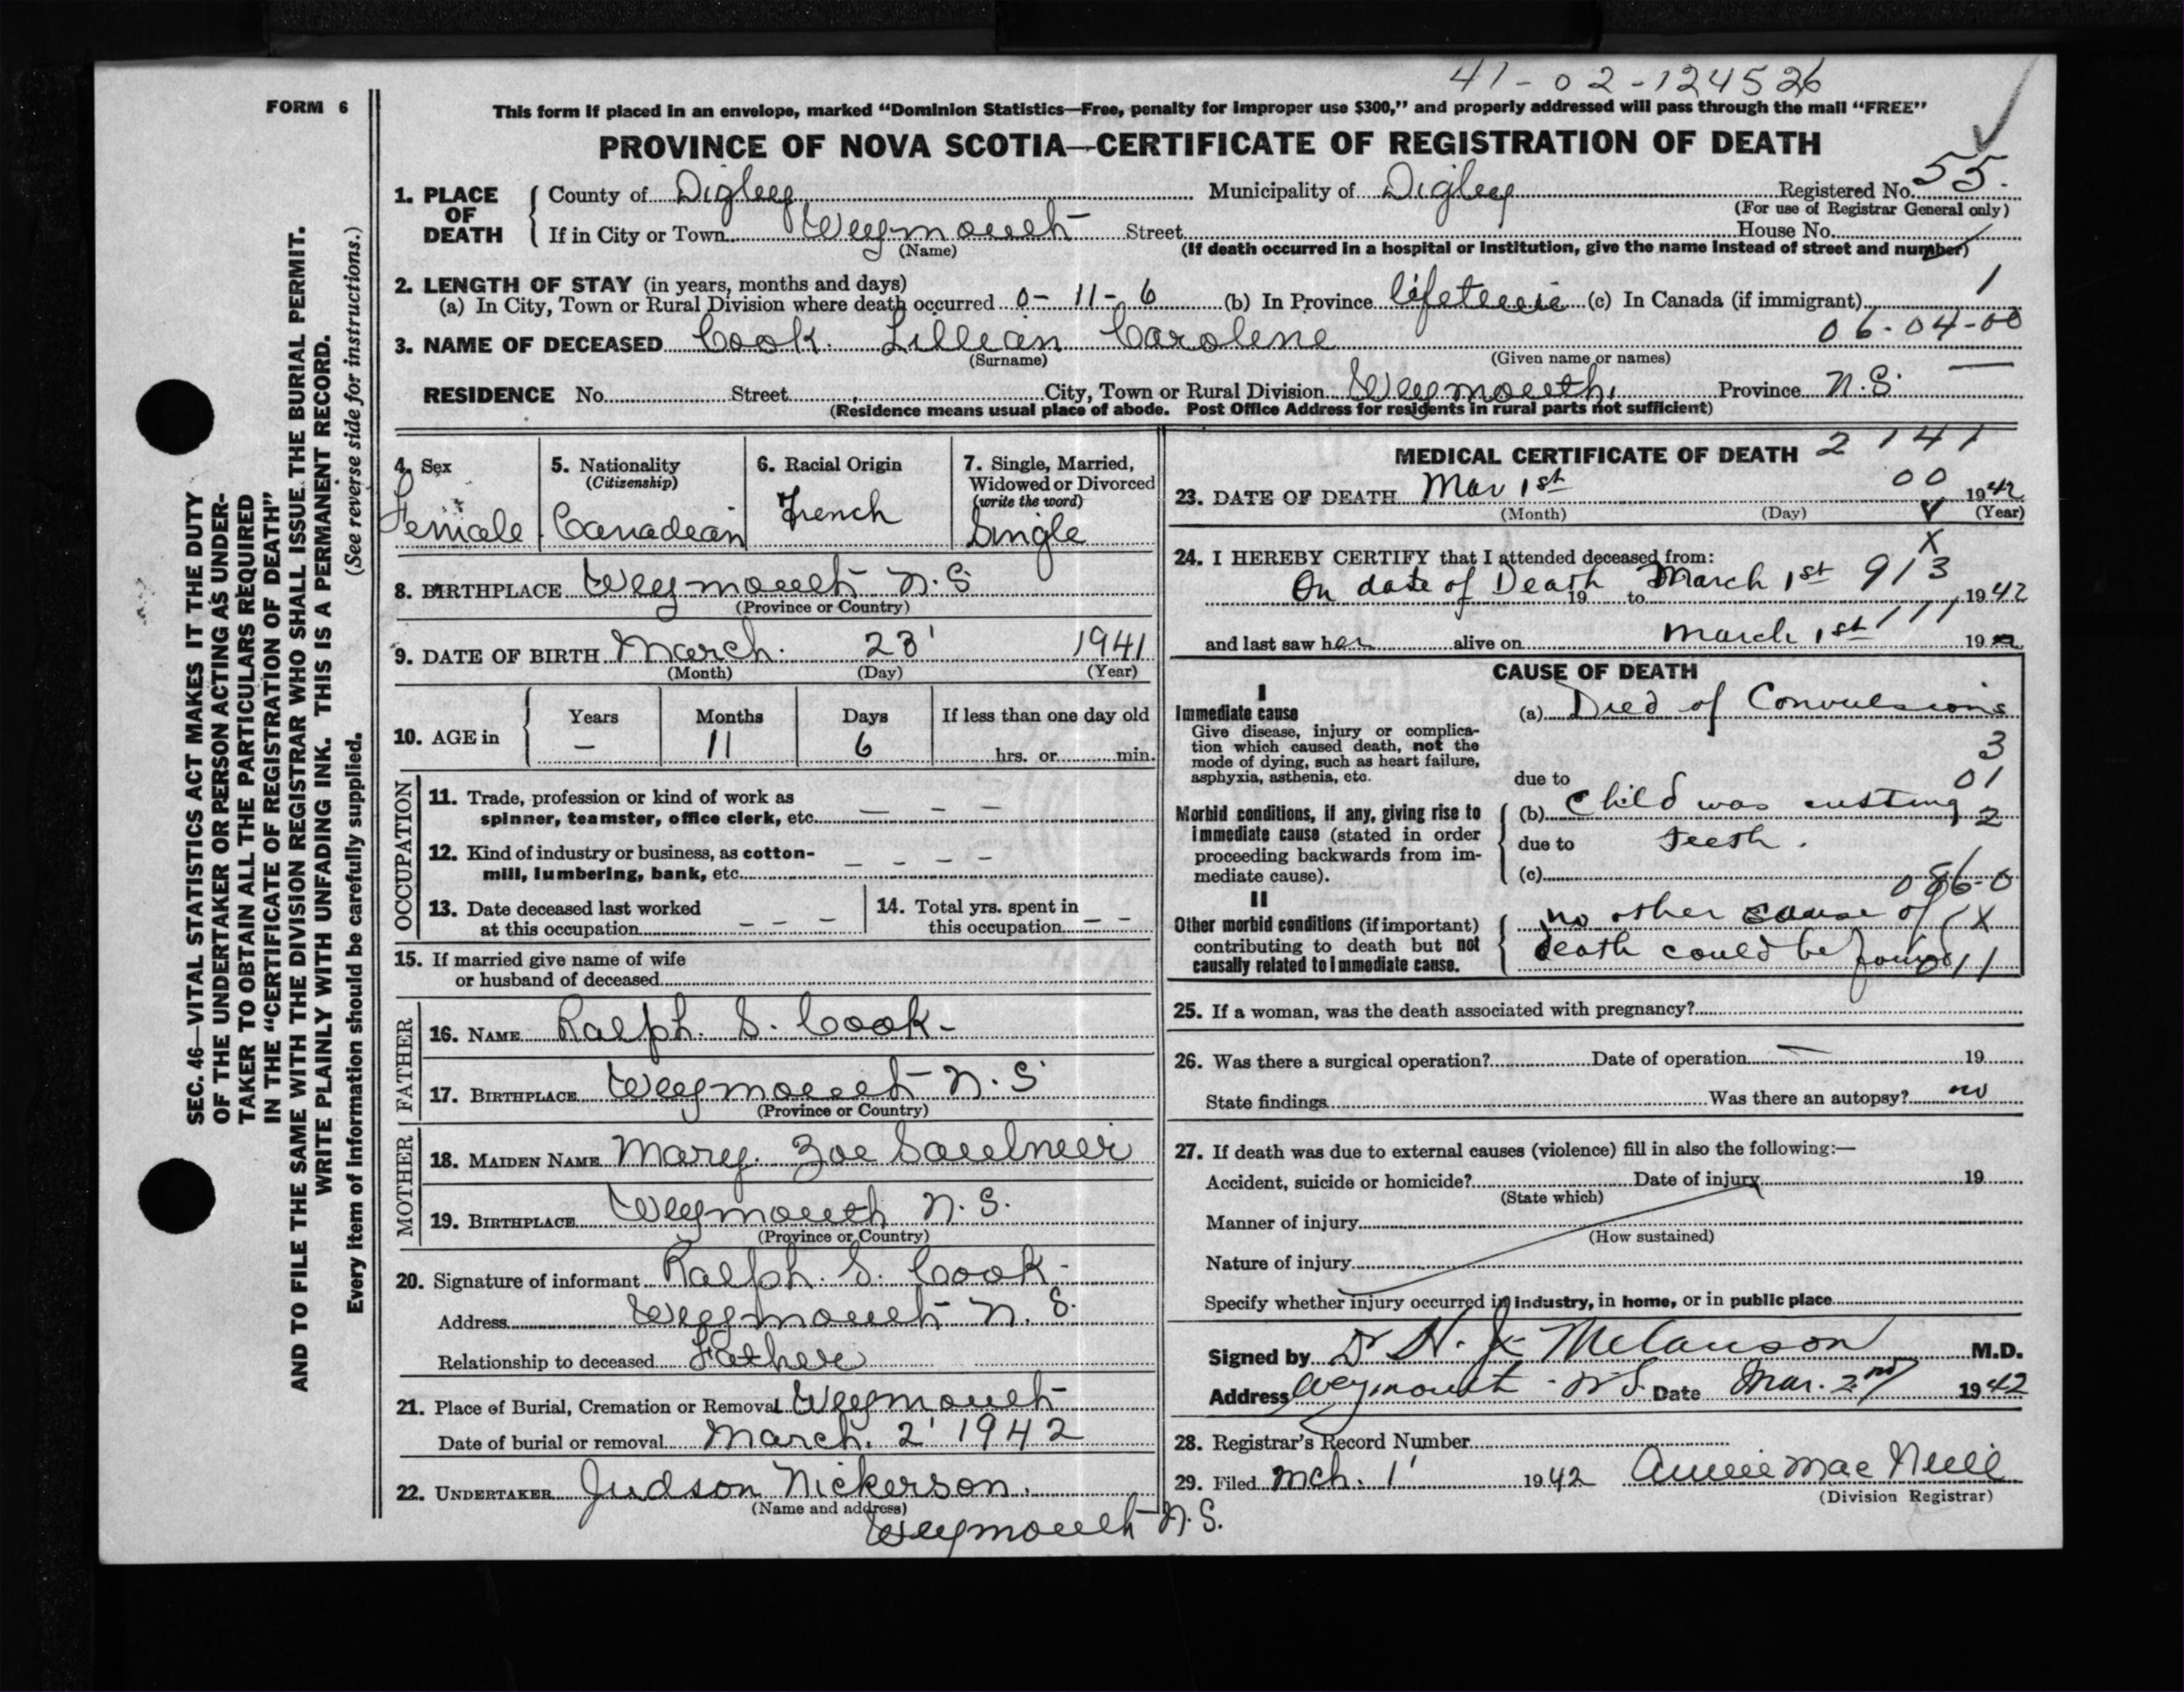 41-02-124526
FORM 6
This form if placed in an envelope, marked “Dominion Statistics—Free, penalty for improper use $300,” and properly addressed will pass through the mail “FREE”
PROVINCE OF NOVA SCOTIA—CERTIFICATE OF REGISTRATION OF DEATH
1. PLACE OF DEATH County of Digby Municipality of Digby Registered No. 55.
(For use of Registrar General only)
If in City or Town Weymouth Street House No.
(Name) (If death occurred in a hospital or institution, give the name instead of street and number)
2. LENGTH OF STAY (in years, months and days) 1
(a) In City, Town or Rural Division where death occurred 0-11-6 (b) In Province lifetime (c) In Canada (if immigrant)
06-04-00
3. NAME OF DECEASED Cook. Lillian Carolene
(Surname) (Given name or names)
RESIDENCE No. Street City, Town or Rural Division Weymouth. Province N.S.
(Residence means usual place of abode. Post Office Address for residents in rural parts not sufficient)
4. Sex Female
5. Nationality (Citizenship) Canadian
6. Racial Origin French
7. Single, Married, Widowed or Divorced (write the word) Single
8. BIRTHPLACE Weymouth N.S
(Province or Country)
9. DATE OF BIRTH March. 23' 1941
(Month) (Day) (Year)
10. AGE in Years — Months 11 Days 6 If less than one day old hrs. or min.
OCCUPATION
11. Trade, profession or kind of work as
spinner, teamster, office clerk, etc. — — —
12. Kind of industry or business, as cotton-
mill, lumbering, bank, etc. — — — —
13. Date deceased last worked
at this occupation — — —
14. Total yrs. spent in
this occupation — —
15. If married give name of wife
or husband of deceased
FATHER
16. NAME Ralph. S. Cook-
17. BIRTHPLACE Weymouth N.S
(Province or Country)
MOTHER
18. MAIDEN NAME Mary. Zoe Saulneir
19. BIRTHPLACE Weymouth N.S.
(Province or Country)
20. Signature of informant Ralph. S. Cook-
Address Weymouth N.S.
Relationship to deceased Father
21. Place of Burial, Cremation or Removal Weymouth
Date of burial or removal March. 2' 1942
22. UNDERTAKER Judson Nickerson.
(Name and address)
Weymouth N.S.
MEDICAL CERTIFICATE OF DEATH 2 141
23. DATE OF DEATH Mar 1st 00 1942
(Month) (Day) (Year)
X
24. I HEREBY CERTIFY that I attended deceased from:
On date of Death 19 to March 1st 913 1942
and last saw her alive on March 1st 111 19
CAUSE OF DEATH
I
Immediate cause
Give disease, injury or complica-
tion which caused death, not the
mode of dying, such as heart failure,
asphyxia, asthenia, etc.
(a) Died of Convulsions
3
due to 01
Morbid conditions, if any, giving rise to
immediate cause (stated in order
proceeding backwards from im-
mediate cause).
(b) Child was cutting 2
due to teeth.
(c) 086-0
II
Other morbid conditions (if important)
contributing to death but not
causally related to immediate cause.
no other cause of X
death could be found 011
25. If a woman, was the death associated with pregnancy?
26. Was there a surgical operation? Date of operation — 19
State findings Was there an autopsy? no
27. If death was due to external causes (violence) fill in also the following:—
Accident, suicide or homicide? Date of injury 19
(State which)
Manner of injury
(How sustained)
Nature of injury
Specify whether injury occurred in industry, in home, or in public place
Signed by Dr H. J. Melanson M.D.
Address Weymouth - N.S. Date Mar. 2nd 1942
28. Registrar's Record Number
29. Filed Mch. 1' 1942 Annie Mac Neill
(Division Registrar)
SEC. 46—VITAL STATISTICS ACT MAKES IT THE DUTY
OF THE UNDERTAKER OR PERSON ACTING AS UNDER-
TAKER TO OBTAIN ALL THE PARTICULARS REQUIRED
IN THE “CERTIFICATE OF REGISTRATION OF DEATH”
AND TO FILE THE SAME WITH THE DIVISION REGISTRAR WHO SHALL ISSUE THE BURIAL PERMIT.
WRITE PLAINLY WITH UNFADING INK. THIS IS A PERMANENT RECORD.
Every item of information should be carefully supplied. (See reverse side for instructions.)